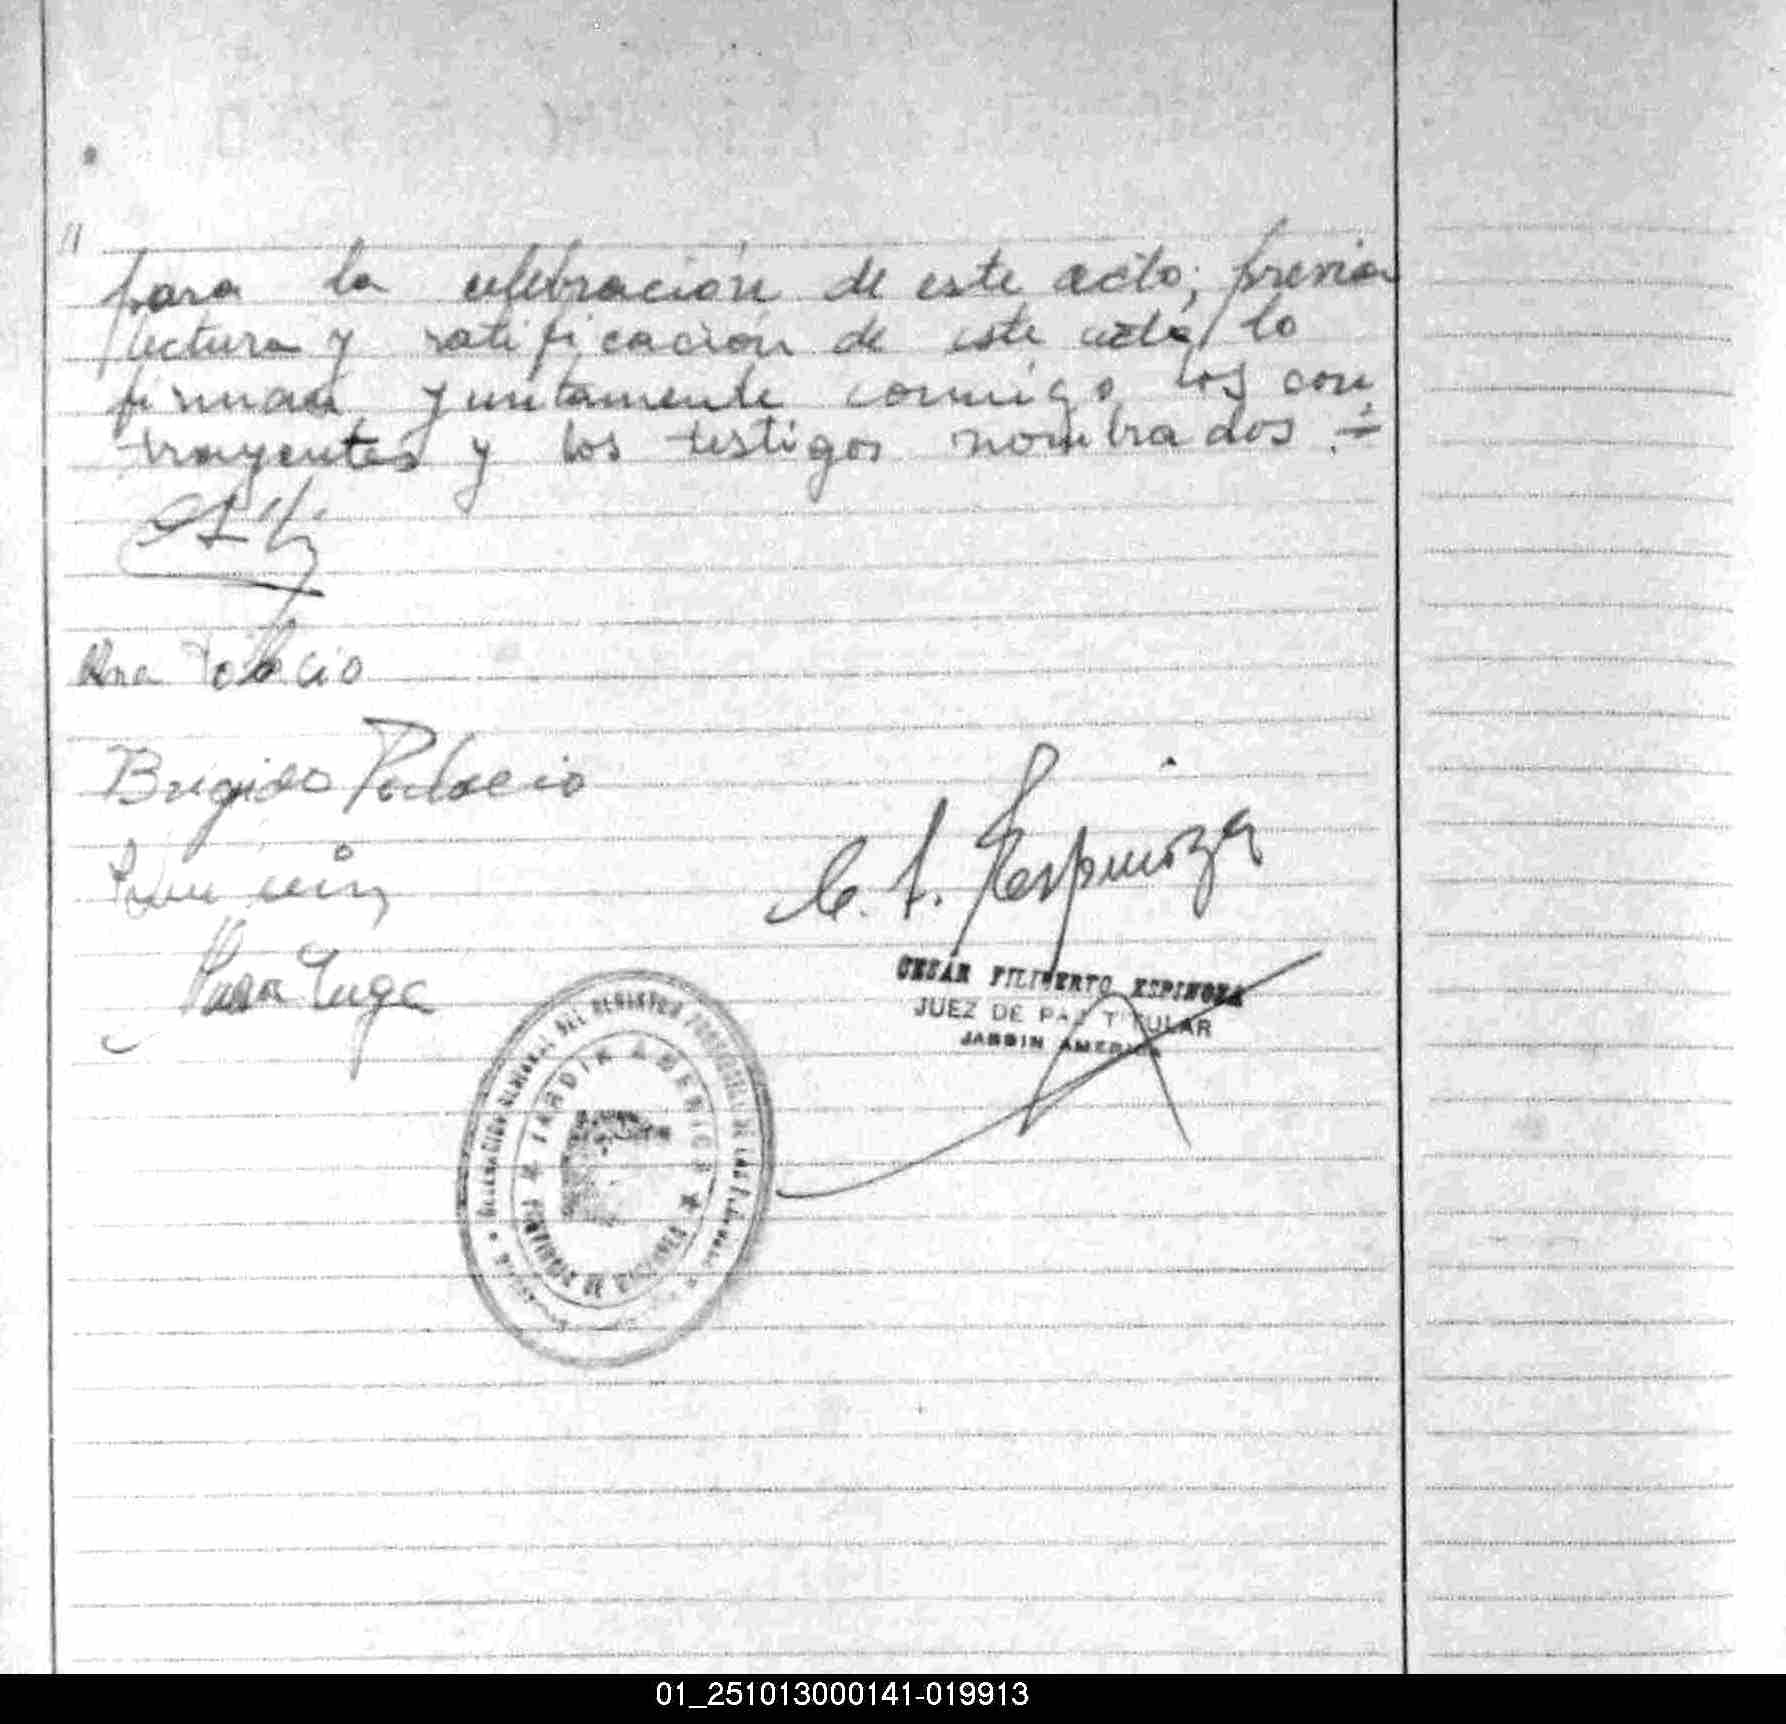 "
para la celebración de este acto; previa
lectura y ratificación de este acta, lo
firman juntamente conmigo los con
trayentes y los testigos nombrados.=
Ana Palacio
Brigido Palacio
C. F. Espinoza
CESAR FILIBERTO ESPINOZA
JUEZ DE PAZ TITULAR
JARDIN AMERICA
DEL REGISTRO PROVINCIAL DE LAS PERSONAS
JARDIN AMERICA
PROVINCIA DE MISIONES
01_251013000141-019913